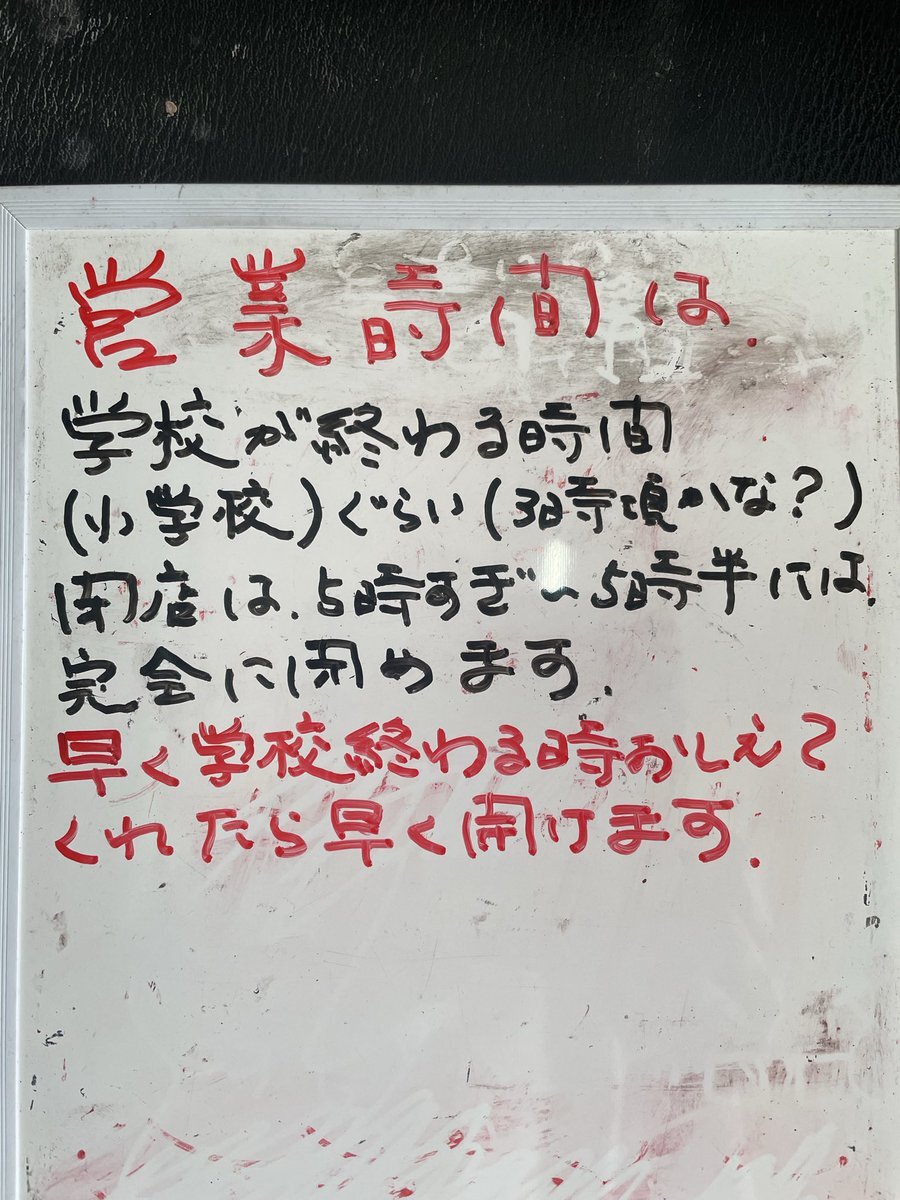 営業時間は.
学校が終わる時間
(小学校)ぐらい(3時頃かな?)
閉店は、5時すぎ~5時半には、
完全に閉めます.
早く学校終わる時おしえて
くれたら早く開けます.